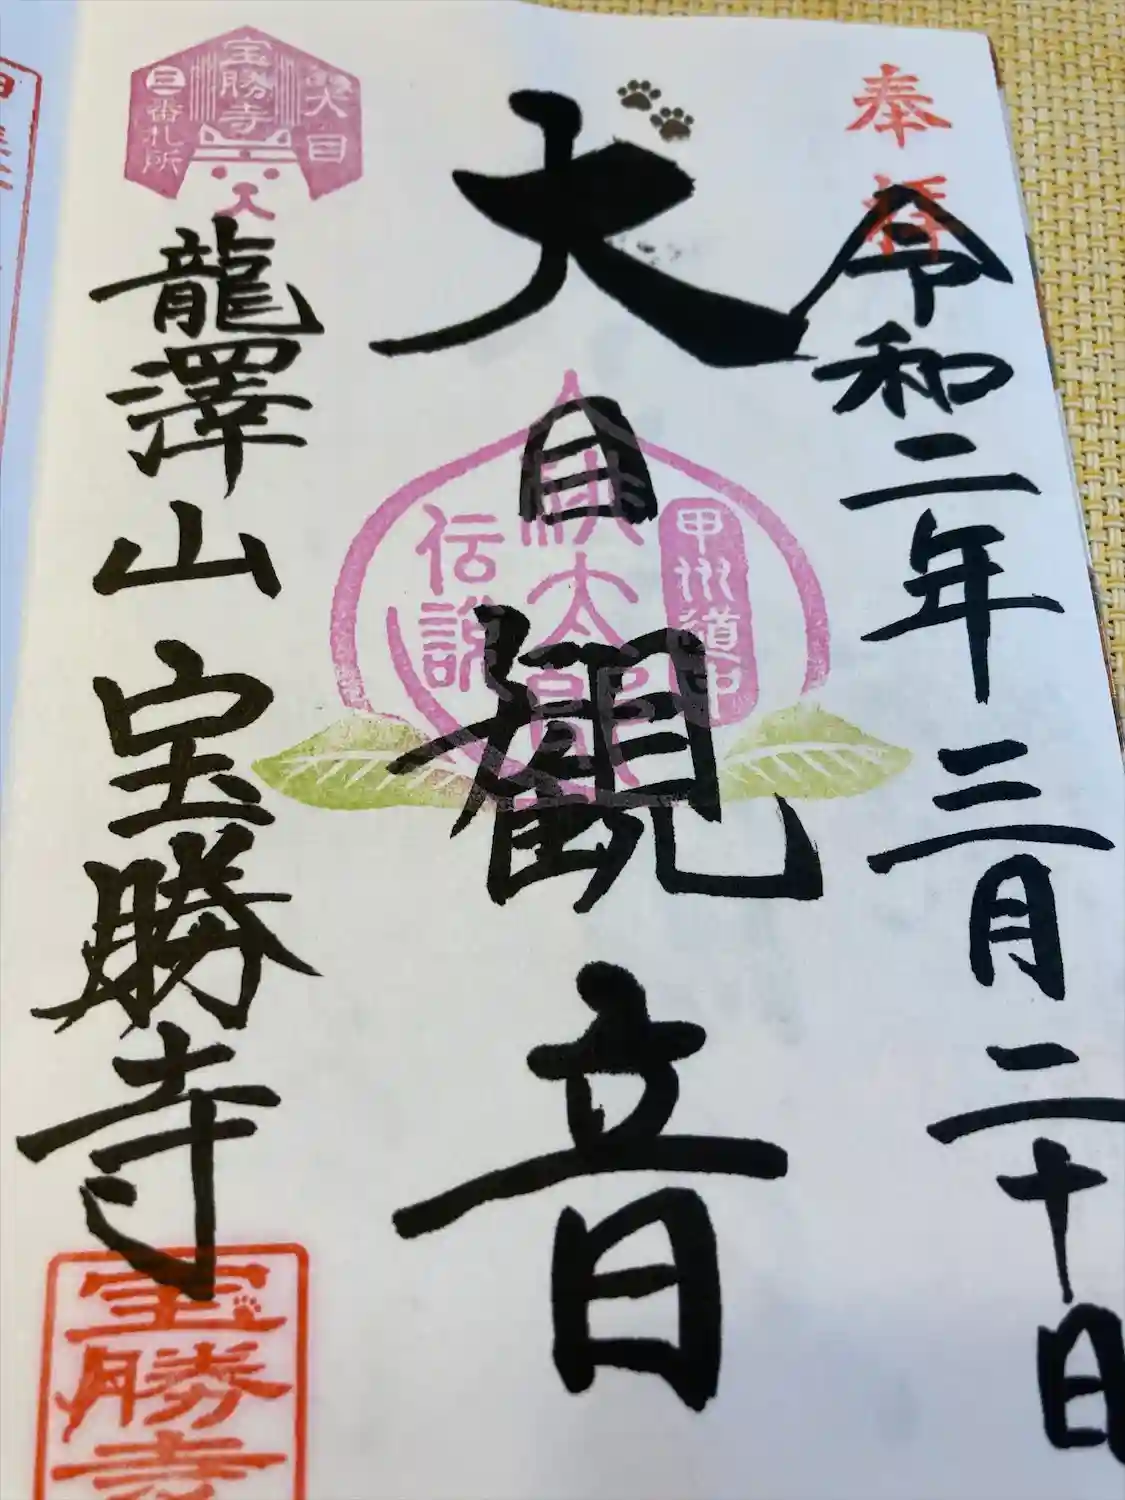 奉拝
令和二年三月二十日
犬目観音
甲州道中
桃太郎
伝説
犬目
宝勝寺
三番札所
龍澤山 宝勝寺
宝勝寺